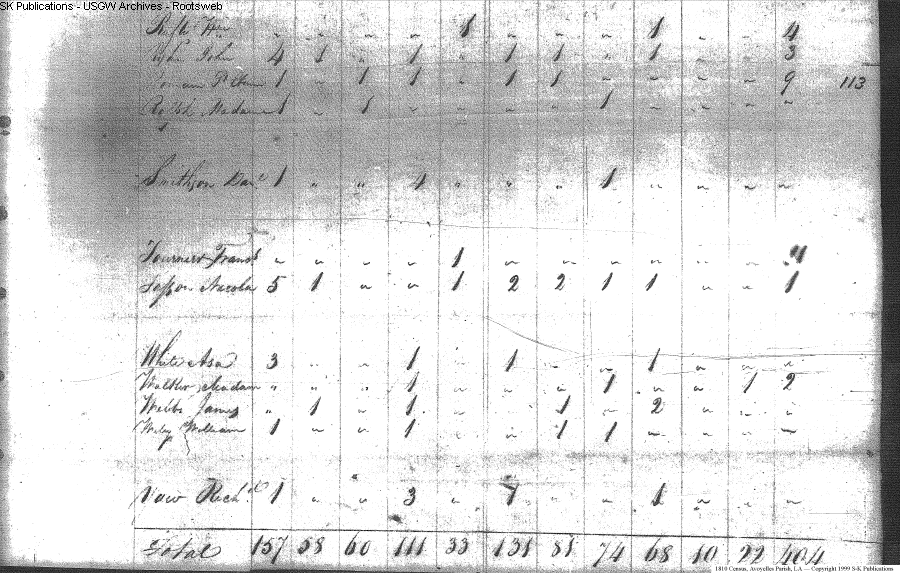 SK Publications - USGW Archives - Rootsweb
Wm " " " " 1 " " " 1 " " 4
John 4 1 " 1 " 1 1 " 1 " " 3
1 " 1 1 " 1 1 " " " " 9 113
Madam 1 " 1 " " " " 1 " " " "
Smithson Danl 1 " " 4 " " " 1 " " " "
Fournier Frans " " " " 1 " " " " " " 4
5 1 " " 1 2 2 1 1 " " 1
White Asa 3 " " 1 " 1 " " 1 " " "
Walker Madam " " " 1 " " " 1 " " 1 2
Webb James " 1 " 1 " " 1 " 2 " " "
Wiley William 1 " " 1 " " 1 1 " " " "
Richd 1 " " 3 " 1 " " 1 " " "
Total 157 58 60 111 33 131 81 74 68 10 22 404
1810 Census, Avoyelles Parish, LA — Copyright 1999 S-K Publications